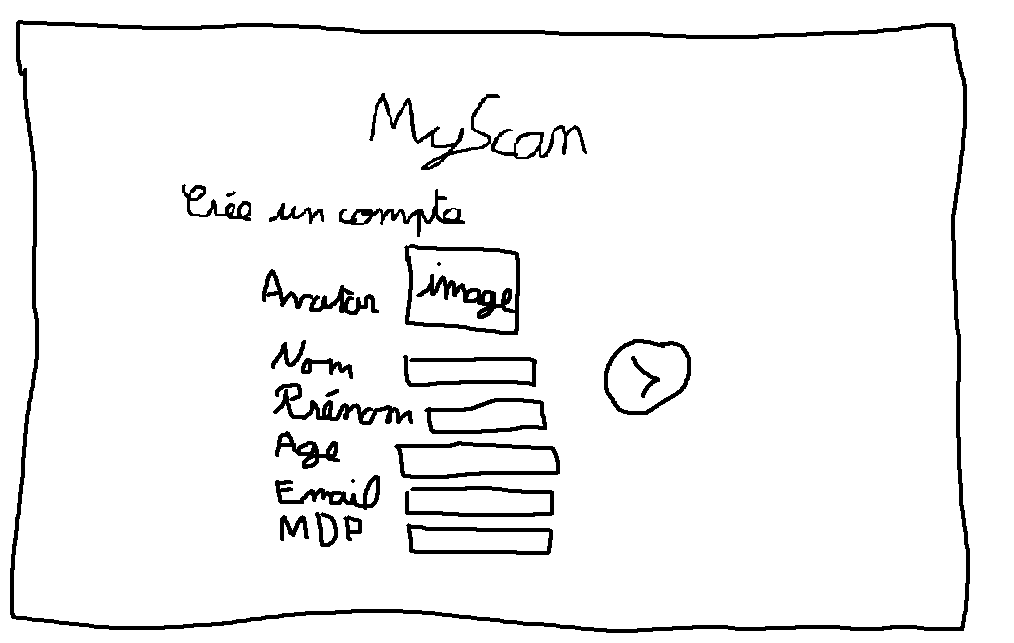 MyScan
Crée un compte
Avatar image
Nom
Prénom
Age
Email
MDP